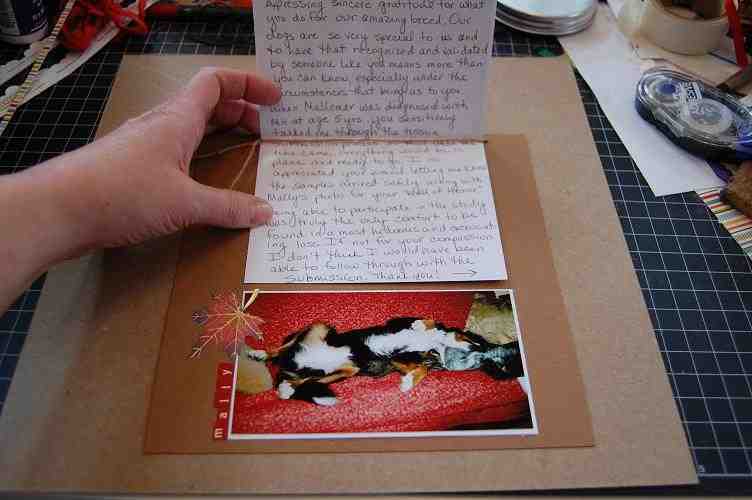 expressing sincere gratitude for what
you do for our amazing breed. Our
dogs are so very special to us and
to have that recognized and validated
by someone like you means more than
you can know, especially under the
circumstances that bring us to you.
When Mallomar was diagnosed with
MH at age 5 yrs, you sensitively
talked me through the tissue
time came, everything would be in
place and ready to go. I so
appreciated your email letting me know
the samples arrived safely along with
Mally's photo for your "Wall of Honor".
Being able to participate in the study
was truly the only comfort to be
found in a most heinous and
ing loss. If not for your compassion
I don't think I would have been
able to follow through with the
submission. Thank you! →
mally